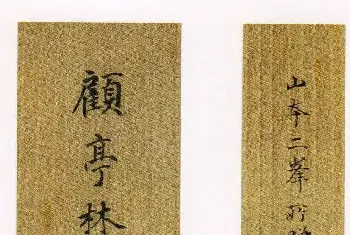 顧亭林
山本二峯